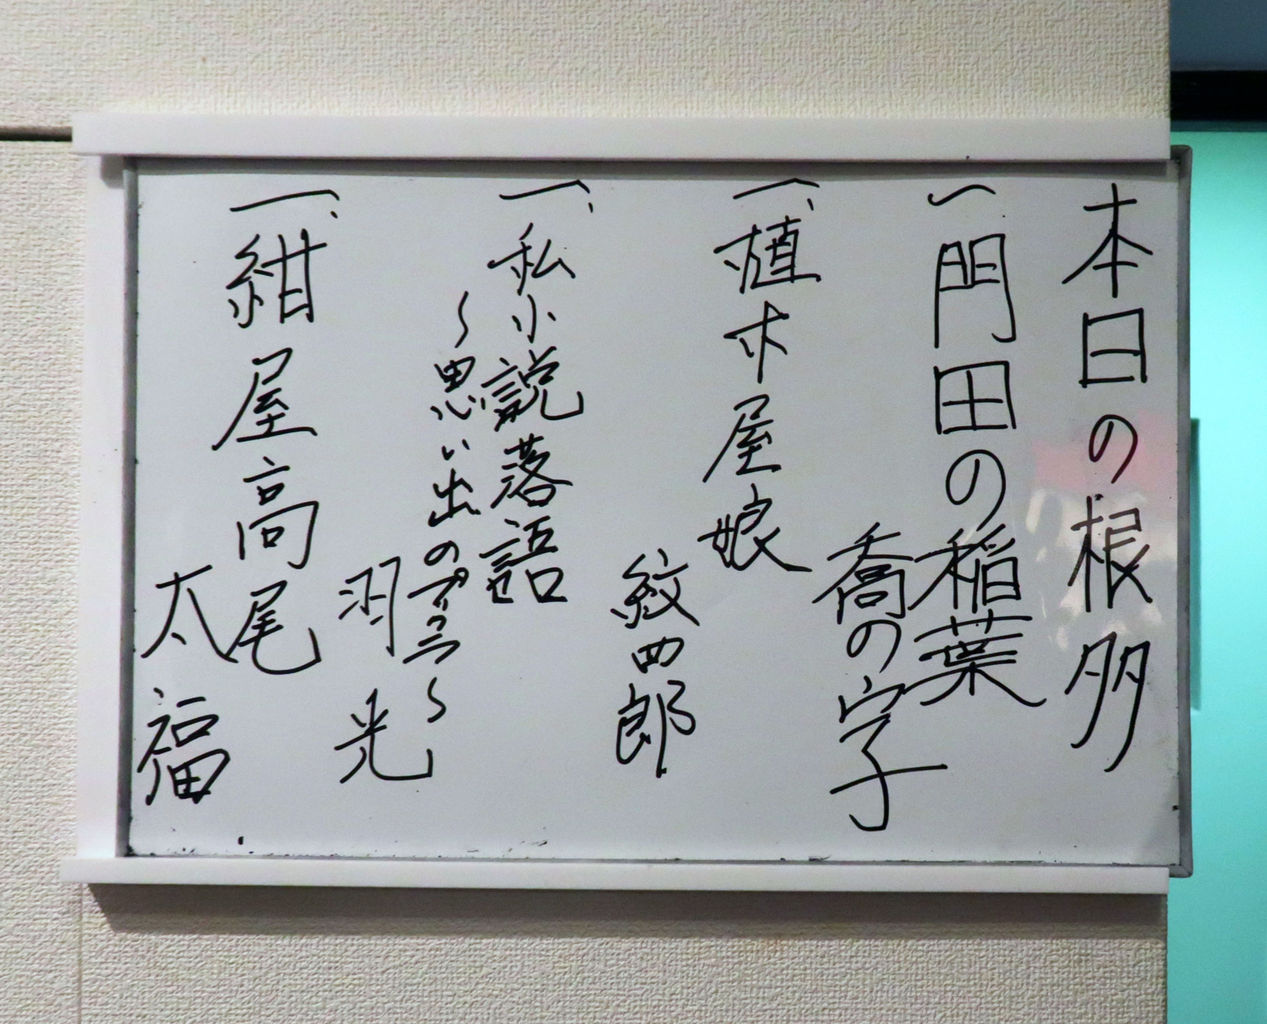 本日の根多
一 門田の稲葉
喬の字
一、植木屋娘
紋四郎
一、私小説落語
～思い出のプリクラ～
羽光
一、紺屋高尾
太福